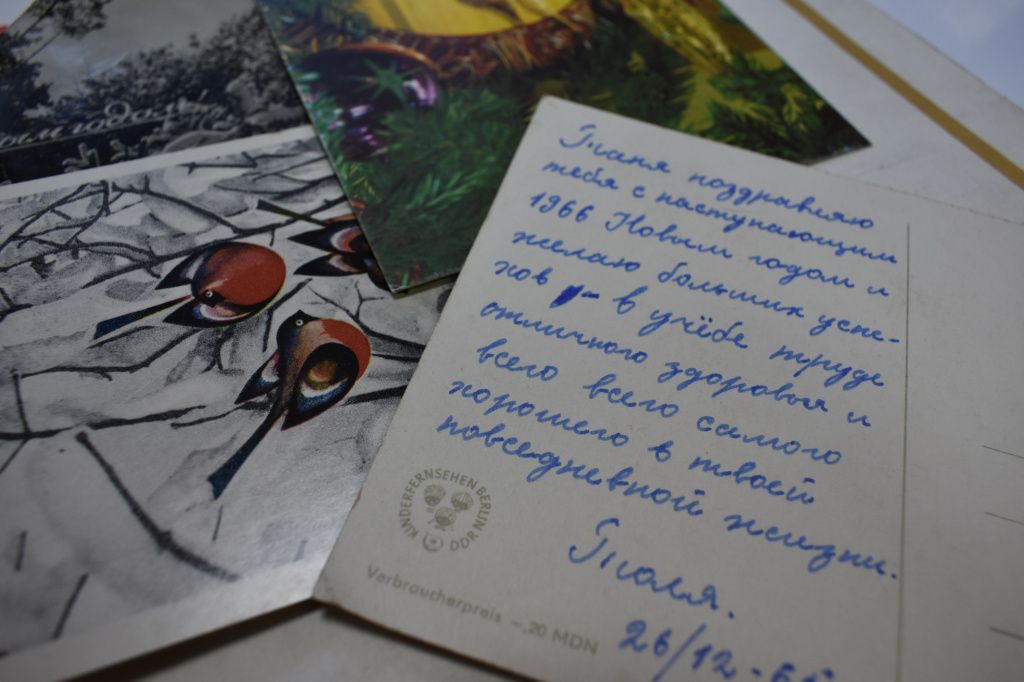 Таня поздравляю
тебя с наступающим
1966 Новым годом и
желаю больших успе-
хов - в учёбе труде
отличного здоровья и
всего всего самого
хорошего в твоей
повседневной жизни.
Толя.
26/12-65
KINDERFERNSEHEN BERLIN
DDR
Verbraucherpreis -,20 MDN
годом!